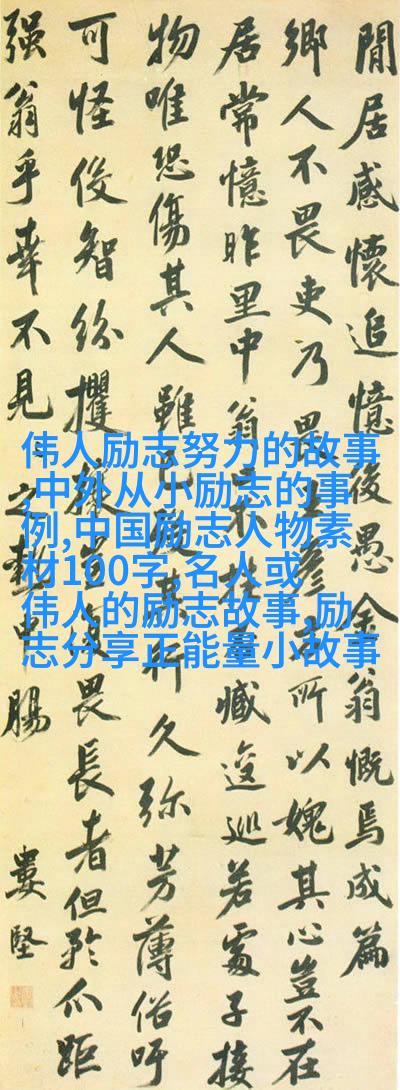 閒居感懷追憶後愚金翁慨焉成篇
鄉人不畏吏乃畏彥方所以媿其心豈不在
居常憶昨里中翁不臧逡巡若處子接
物唯恐傷其人雖已歿其行久彌芳薄俗吁
可怪役智紛攫豈復畏長者但矜爪距
強翁乎幸不見之中腸
婁堅
伟人励志努力的故事
,中外从小励志的事
例,中国励志人物素
材100字,名人或
伟人的励志故事,励
志分享正能量小故事